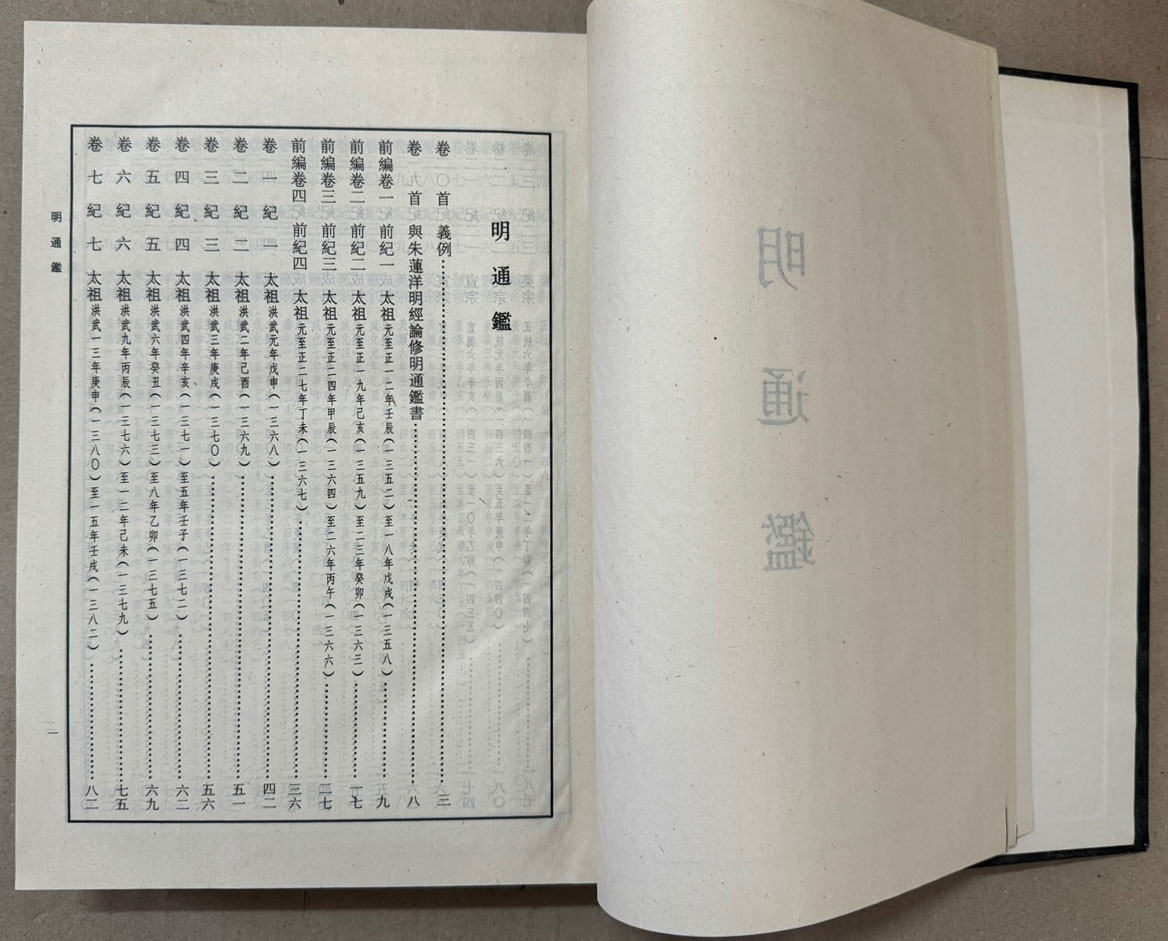 明通鑑
卷首 義例……三
卷首 與朱蓮洋明經論修明通鑑書……八
前編卷一 前紀一 太祖元至正一二年壬辰(一三五二)至一八年戊戌(一三五八)……九
前編卷二 前紀二 太祖元至正一九年己亥(一三五九)至二三年癸卯(一三六三)……一七
前編卷三 前紀三 太祖元至正二四年甲辰(一三六四)至二六年丙午(一三六六)……二七
前編卷四 前紀四 太祖元至正二七年丁未(一三六七)……三六
卷一 紀一 太祖洪武元年戊申(一三六八)……四二
卷二 紀二 太祖洪武二年己酉(一三六九)……五一
卷三 紀三 太祖洪武三年庚戌(一三七〇)……五六
卷四 紀四 太祖洪武四年辛亥(一三七一)至五年壬子(一三七二)……六二
卷五 紀五 太祖洪武六年癸丑(一三七三)至八年乙卯(一三七五)……六九
卷六 紀六 太祖洪武九年丙辰(一三七六)至一二年己未(一三七九)……七五
卷七 紀七 太祖洪武一三年庚申(一三八〇)至一五年壬戌(一三八二)……八二
明通鑑
明通鑑